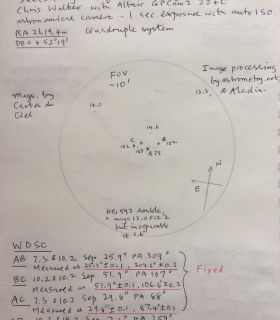 Chris Walker with Altair GPCam2 224C
astronomical camera - 1 sec exposure with auto ISO.
RA 2h 19.4m
Quadruple system
FOV
~10'
Image processing
by astrometry.net
& Aladin.
Mags. by
Cartes du
Ciel
12.3
14.0
14.4
C
B
102
A 7.5
N
E
double,
but inseparable
at 1.6"
WDSC
AB 7.5 & 10.2 Sep 25.9" PA 309°
Measured at 25.3" ± 0.1, 309.2° ± 0.2
BC 10.2 & 10.2 Sep 51.9" PA 107°
Measured at 51.9" ± 0.1, 106.6° ± 0.2
AC 7.5 & 10.2 Sep 29.8" PA 88°
Measured at 29.8" ± 0.1, 87.4° ± 0.1
Fixed